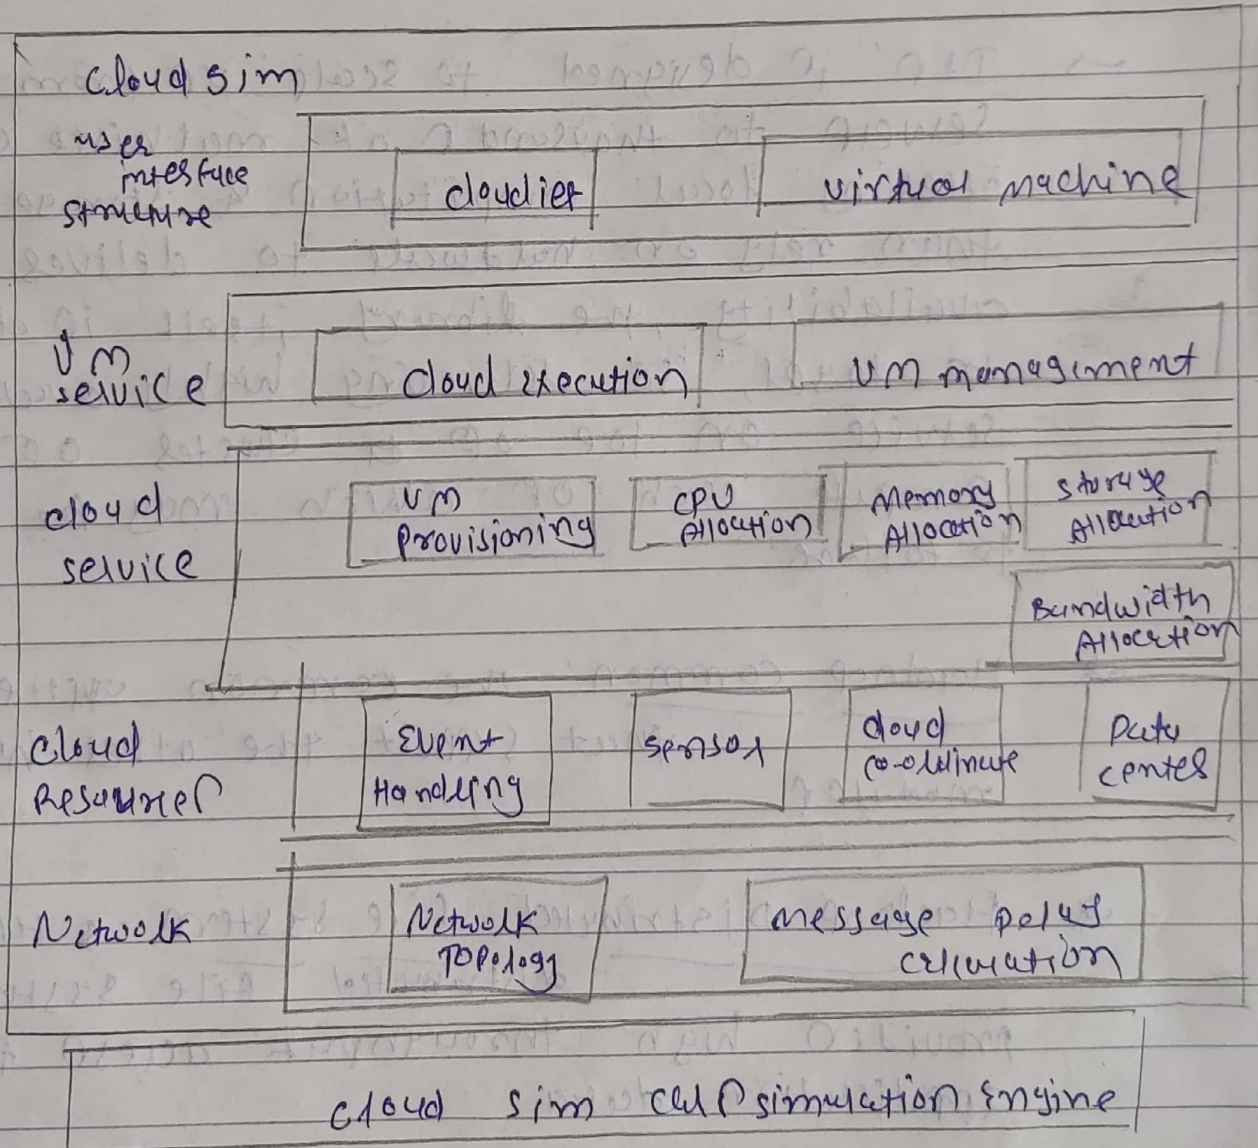 cloud sim
user
interface
structure
cloudlet
virtual machine
VM
service
cloud execution
VM management
cloud
service
VM
Provisioning
CPU
Allocation
Memory
Allocation
Storage
Allocation
Bandwidth
Allocation
cloud
Resources
Event
Handling
sensor
cloud
co-ordinate
Data
center
Network
Network
Topology
message delay
calculation
cloud sim simulation Engine